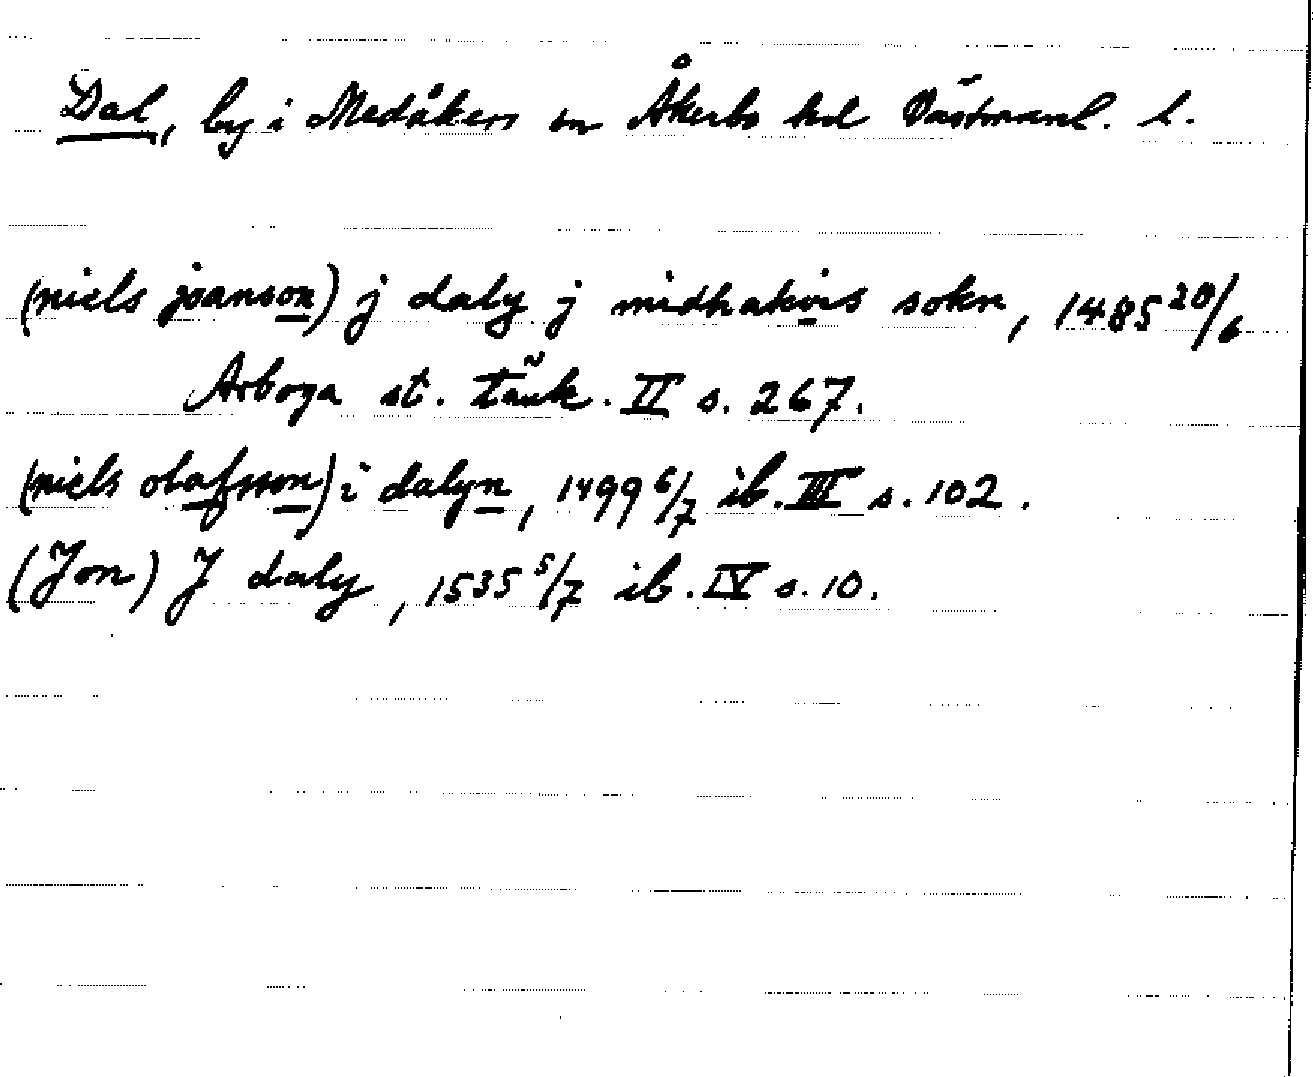 Dal, by i Medåkers sn Åkerbo hd Västmanl. l.
(niels joanson) j daly j midhakris sokn, 1485 20/6
Arboga st. tänk. II s. 267.
(niels olafsson) i dalyn, 1499 6/7 ib. III s. 102.
(Jon) J daly, 1535 5/7 ib. IV s. 10.